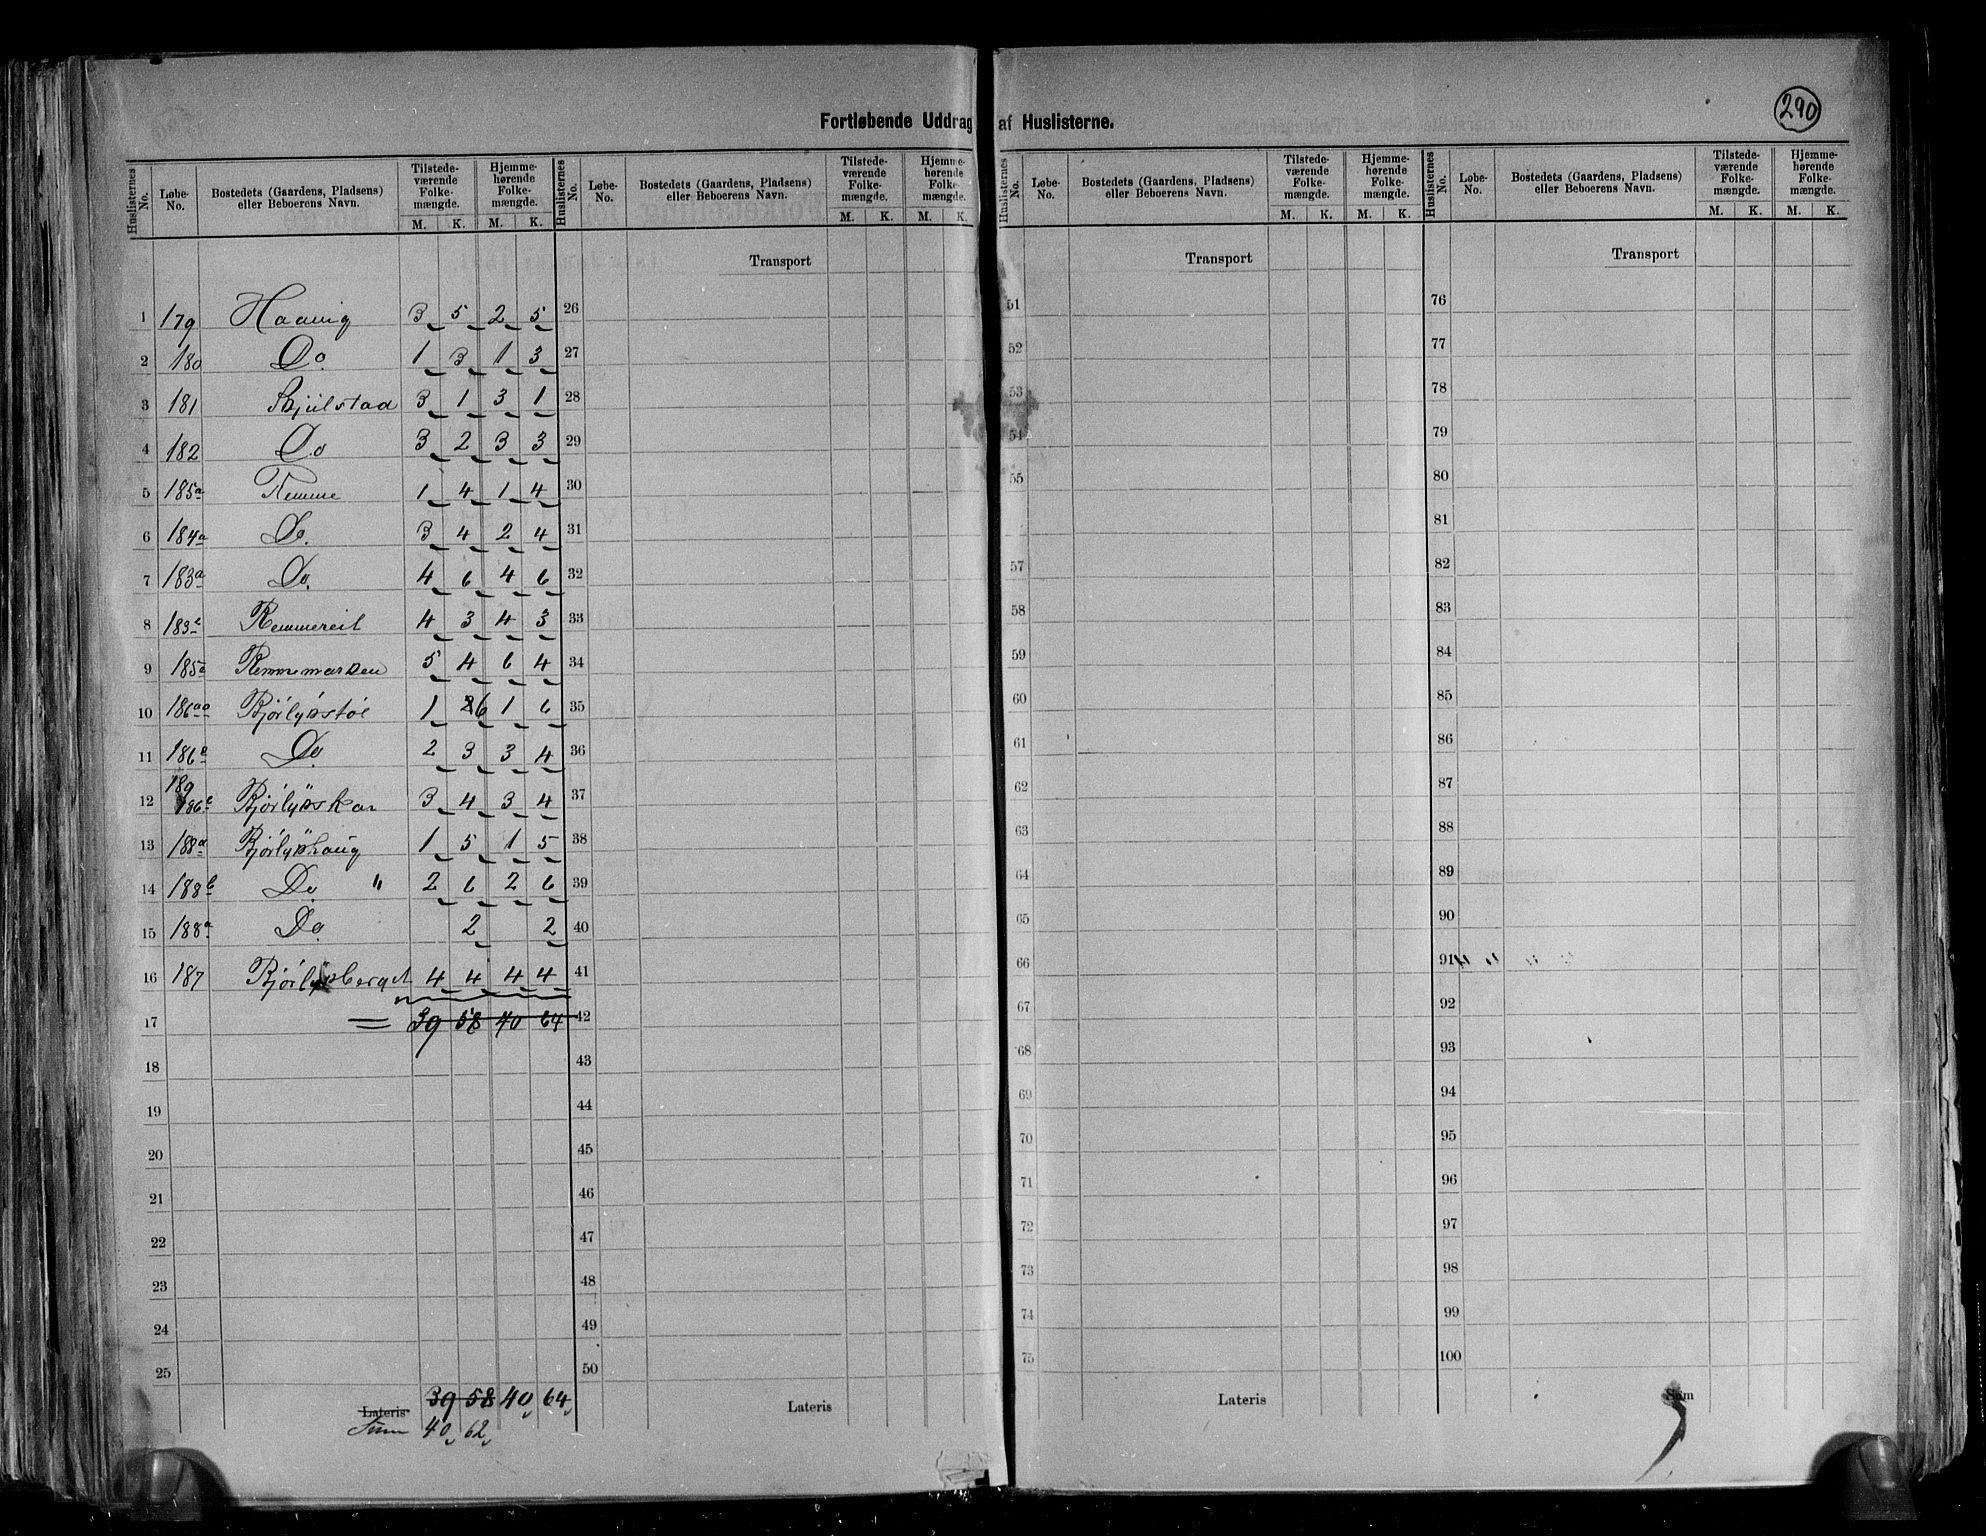 290
Fortløbende Uddrag af Huslisterne.
Huslisternes No. Løbe-No. Bostedets (Gaardens, Pladsens) eller Beboerens Navn. Tilstedeværende Folkemængde. M. K. Hjemmehørende Folkemængde. M. K.
Huslisternes No. Løbe-No. Bostedets (Gaardens, Pladsens) eller Beboerens Navn. Tilstedeværende Folkemængde. M. K. Hjemmehørende Folkemængde. M. K.
Huslisternes No. Løbe-No. Bostedets (Gaardens, Pladsens) eller Beboerens Navn. Tilstedeværende Folkemængde. M. K. Hjemmehørende Folkemængde. M. K.
Huslisternes No. Løbe-No. Bostedets (Gaardens, Pladsens) eller Beboerens Navn. Tilstedeværende Folkemængde. M. K. Hjemmehørende Folkemængde. M. K.
1 179 Haavig 3 5 2 5
2 180 Do. 1 3 1 3
3 181 Skjulstad 3 1 3 1
4 182 Do 3 2 3 3
5 185a Remme 1 4 1 4
6 184a Do. 3 4 2 4
7 183a Do. 4 6 4 6
8 183c Remmereit 4 3 4 3
9 185a Remmemarken 5 4 6 4
10 186aa Bjørlykstøl 1 6 1 6
11 186 Do 2 3 3 4
12 189 186c Bjørlykskar 3 4 3 4
13 188a Bjørlykhaug 1 5 1 5
14 188b Do. " 2 6 2 6
15 188a Do. 2 2
16 187 Bjørlykberget 4 4 4 4
17 = 39 58 40 64
18
19
20
21
22
23
24
25
Lateris 39 58 40 64
Sum 40 62
Transport
26
27
28
29
30
31
32
33
34
35
36
37
38
39
40
41
42
43
44
45
46
47
48
49
50
Lateris
Transport
51
52
53
54
55
57
58
59
60
61
62
63
64
65
66
67
68
69
70
71
72
73
74
75
Lateris
Transport
76
77
78
79
80
81
82
83
84
85
86
87
88
89
90
91
92
93
94
95
96
97
98
99
100
Sum